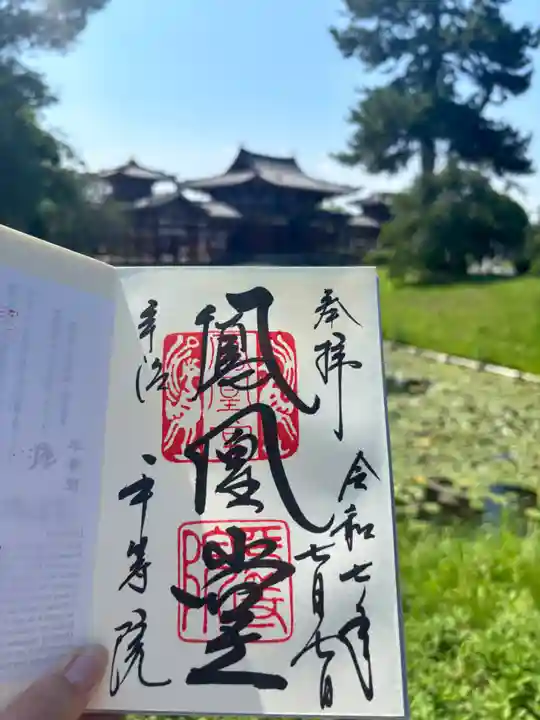 奉拝
令和七年
七月七日
鳳凰堂
宇治
平等院